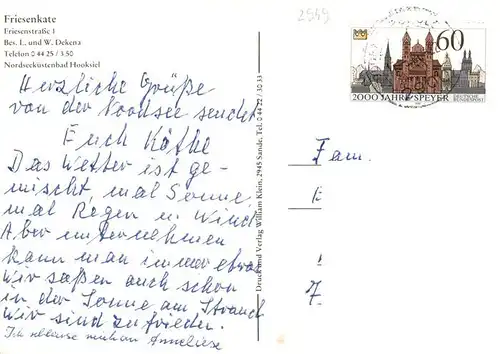 Friesenkate
Friesenstraße 1
Bes. L. und W. Dekena
Telefon 0 44 25 / 3 50
Nordseeküstenbad Hooksiel
Herzliche Grüße
von der Nordsee sendet
Euch Käthe
Das Wetter ist ge-
mischt, mal Sonne,
mal Regen u. Wind.
Aber unternehmen
kann man immer etwas
Wir saßen auch schon
in der Sonne am Strand
Wir sind zufrieden.
Ich Anneliese
Druck und Verlag William Klein, 2945 Sande, Tel. 0 44 22 / 30 33
2949
60
2000 JAHRE SPEYER
DEUTSCHE
BUNDESPOST
Fam.